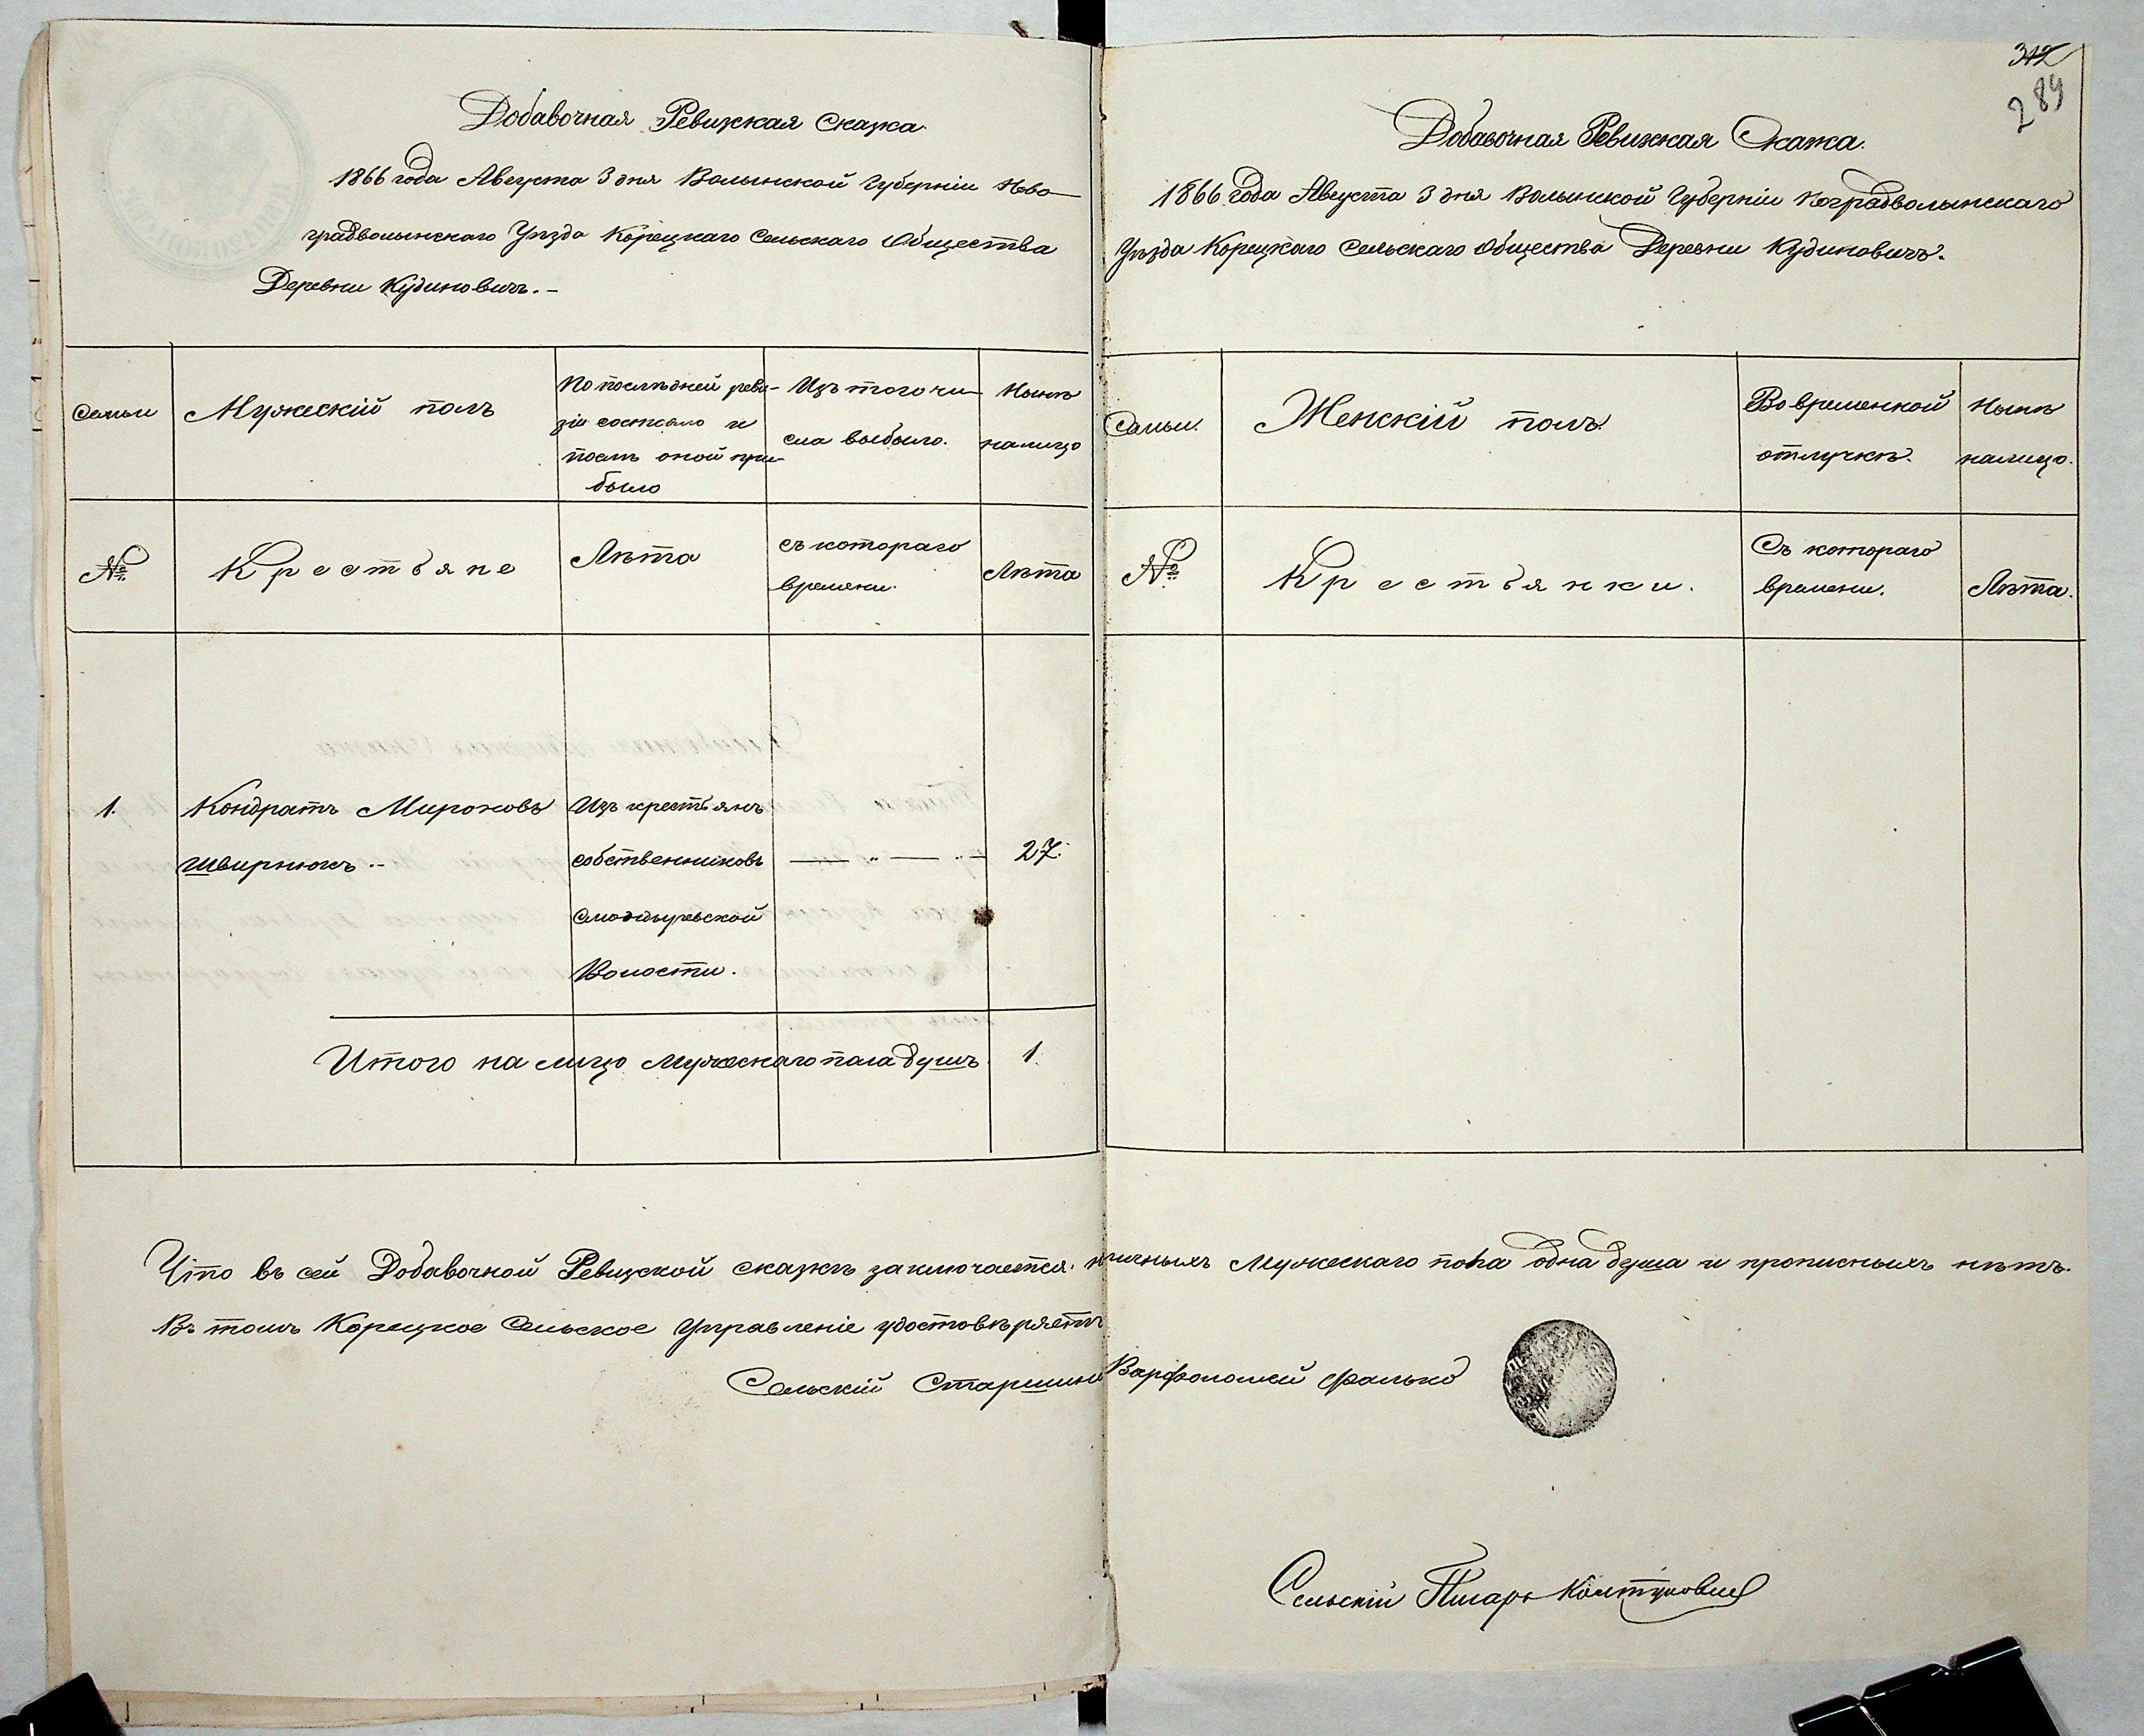 Добавочная Ревизкая Сказка.
1866 года Августа 3 дня Волынской Губерніи Ново
градволынскаго Уѣзда Корецкаго Сельскаго Общества
Деревни Кудиновичъ. –
Семьи
Мужескій полъ
По послѣдней реви-
зіи состояло и
послѣ оной при-
было
Изъ того чи-
сла выбыло.
Нынѣ
налицо
№
Крестьяне
Лѣта
съ котораго
времени.
Лѣта
1.
Кондратъ Мироновъ
Швирнюкъ. –
Изъ крестьянъ
собственниковъ
Волости.
— „ — „ —
27.
Итого на лицо Мужескаго пола душъ
1.
312
289
Добавочная Ревизкая Скаска.
1866 Года Августа 3 дня Волынской Губерніи Ноградволынскаго
Уѣзда Корецкаго Сельскаго Общества Деревни Кудиновичъ.
Семьи.
Женскій полъ.
Во временной
отлучкѣ.
Нынѣ
налицо.
№
Крестьянки.
Съ котораго
времени.
Лѣта.
Что въ сей Добавочной Ревизской сказкѣ заключается наличныхъ Мужескаго пола одна душа и прописныхъ нѣтъ.
Въ томъ Корецкое Сельское Управленіе удостовѣряетъ
Сельскій Старшина Варфоломей Фалько
Сельскій Писарь